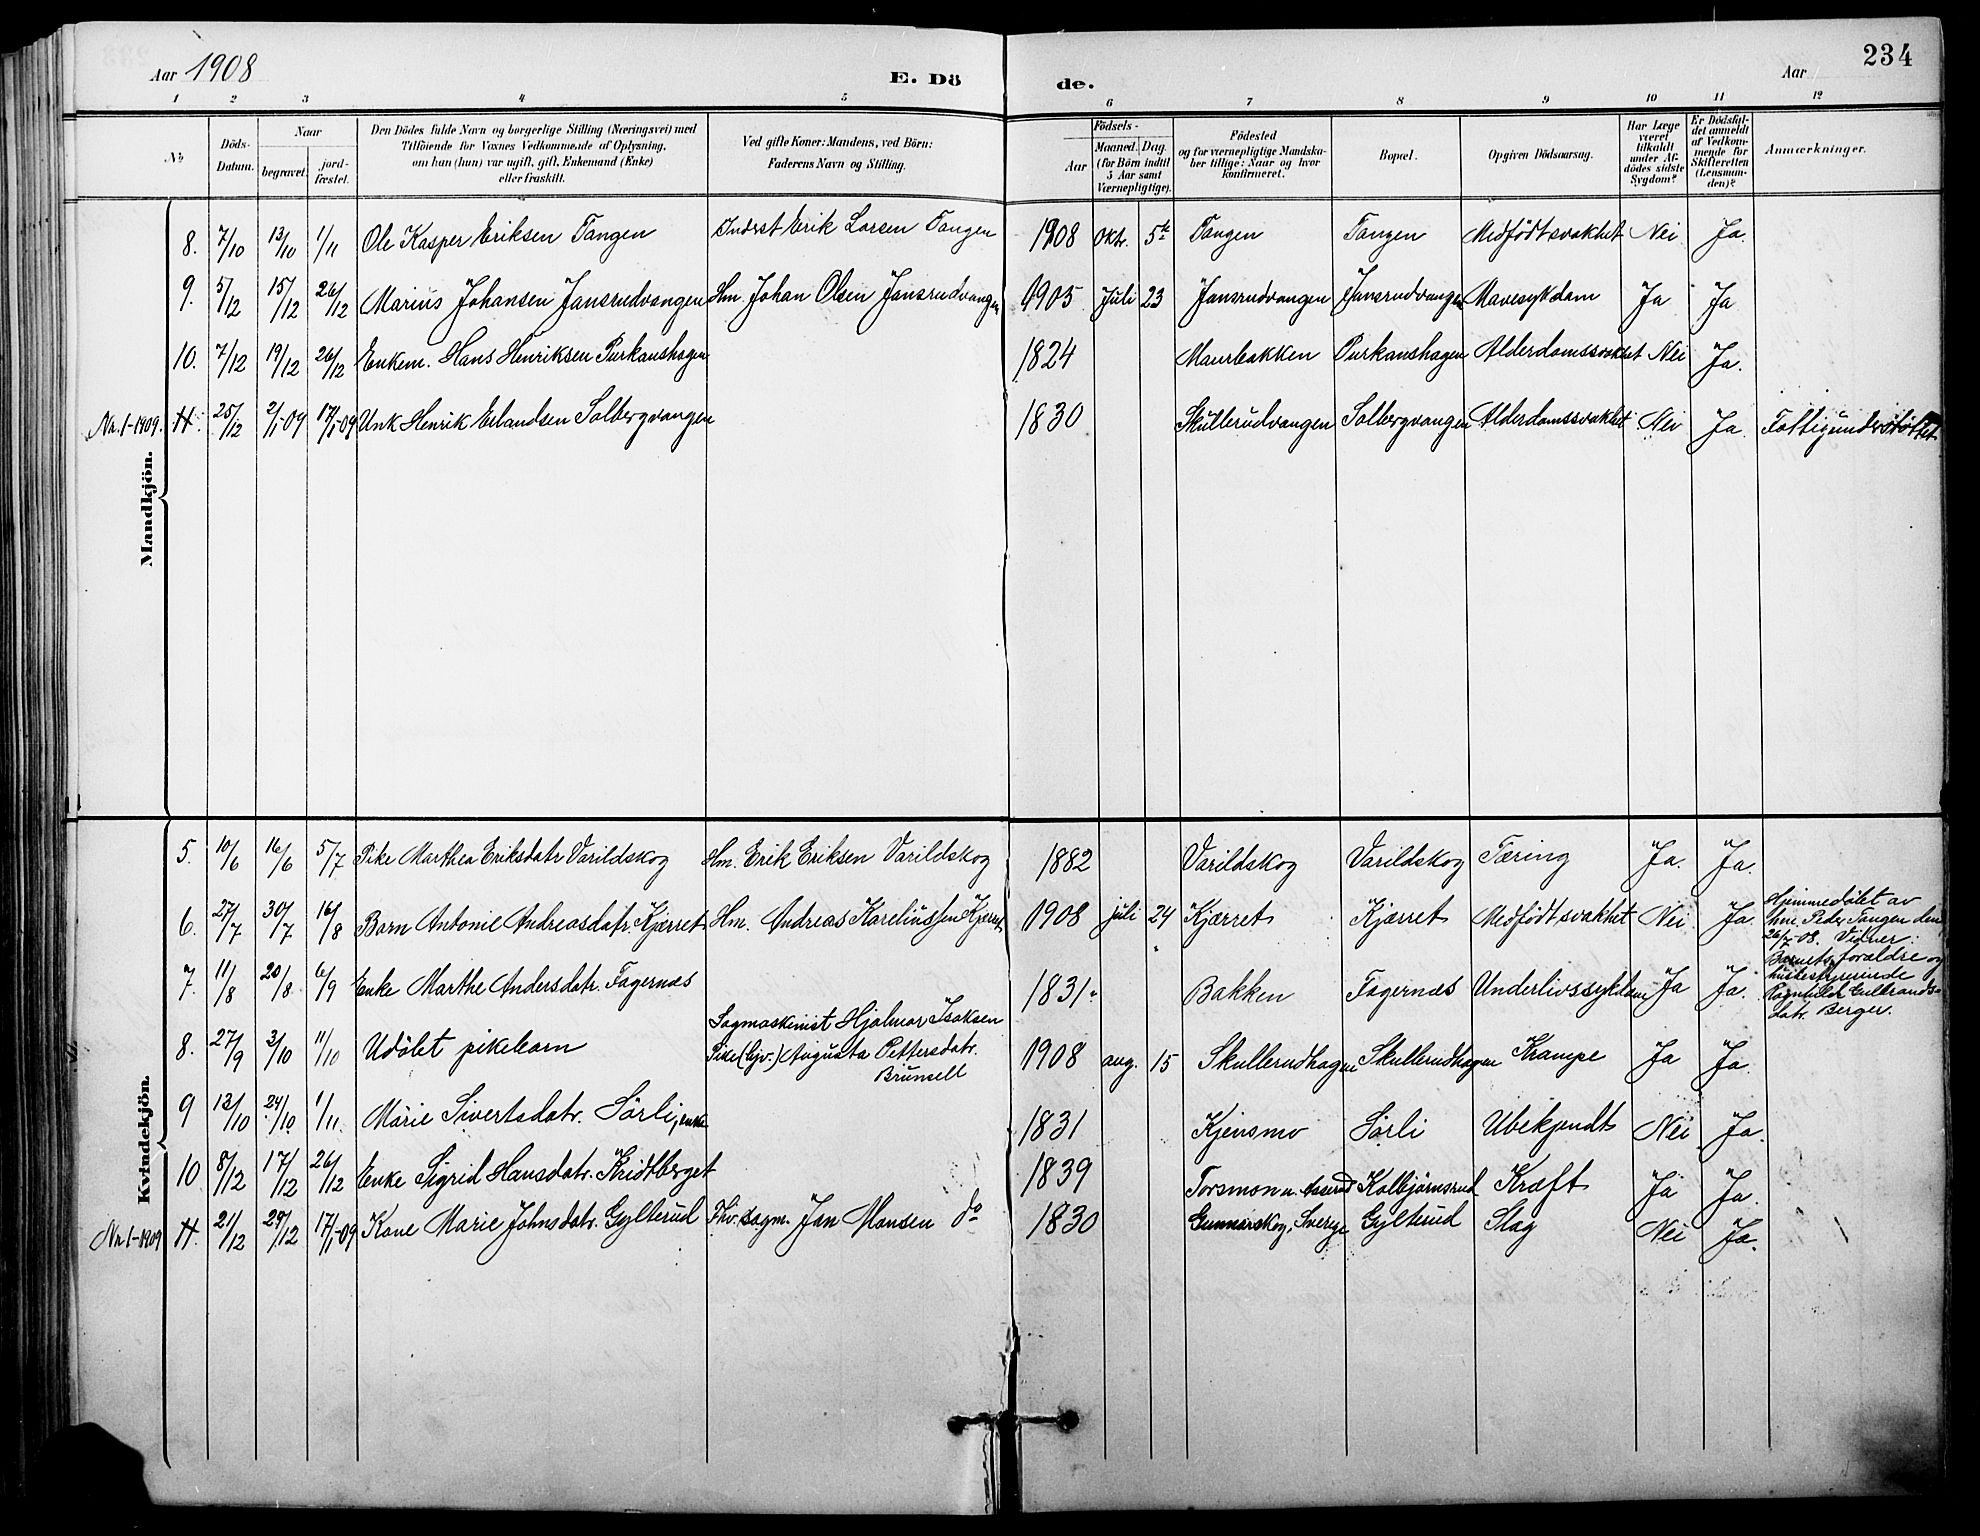 Aar 1908 E. Dö de. Aar 234
1 2 3 4 5 6 7 8 9 10 11 12
No
Döds-
Datum.
Naar
begravet. jord-
fæstet.
Den Dödes fulde Navn og borgerlige Stilling (Næringsvei) med
Tilföiende for Voxnes Vedkommende af Oplysning,
om han (hun) var ugift, gift, Enkemand (Enke)
eller fraskilt.
Ved gifte Koner: Mandens, ved Börn:
Faderens Navn og Stilling.
Födsels-
Aar
Maaned. Dag.
(for Börn indtil
5 Aar samt
Værnepligtige).
Födested
og for værnepligtige Mandska-
ber tillige: Naar og hvor
konfirmeret.
Bopæl.
Opgiven Dödsaarsag.
Har Læge
været
tilkaldt
under Af-
dödes sidste
Sygdom?
Er Dödsfal-
det anmeldt
af Vedkom-
mende for
Skifteretten
(Lensman-
den)?
Anmærkninger.
Mandkjön.
8. 7/10 13/10 1/11 Ole Kasper Eriksen Tangen Inderst Erik Larsen Tangen 1908 oktr. 5te Tangen Tangen Medfödt svakhet Nei Ja.
9. 5/12 15/12 26/12 Marius Johansen Jansrudvangen Hm. Johan Olsen Jansrudvangen 1905 Juli 23 Jansrudvangen Jansrudvangen Mavesykdom Ja Ja
10. 7/12 19/12 26/12 Enkem. Hans Henriksen Purkaushagen 1824 Maurbakken Purkaushagen Alderdomssvakhet Nei Ja.
Nr. 1-1909. 11. 25/12 2/1-09 17/1-09 Unk Henrik Erlandsen Solbergvangen 1830 Skullerudvangen Solbergvangen Alderdomssvakhet Nei Ja. Fattigunderstöttet
Kvindekjön.
5. 10/6 16/6 5/7 Pike Marthea Eriksdatr Varildskog Hm. Erik Eriksen Varildskog 1882 Varildskog Varildskog Tæring Ja. Ja.
6. 27/7 30/7 16/8 Barn Antonie Andreasdatr. Kjærret Hm. Andreas Kareliussen Kjærret 1908 juli 24 Kjærret Kjærret Medfödt svakhet Nei Ja. Hjemmedöbt av
hm. Peder Tangen den
26/7-08. Vidner:
Barnets foraldre og
husbestyrerinde
Ragnhild Gulbrands-
datr. Berger.
7. 11/8 20/8 6/9 Enke Marthe Andersdatr. Fagernæs 1831. Bakken Fagernæs Underlivssykdom Ja Ja.
8. 27/9 3/10 11/10 Udöbt pikebarn Sagmaskinist Hjalmar Isaksen
Pike (tjv.) Augusta Pettersdatr.
Brunsell 1908 aug. 15 Skullerudhagen Skullerudhagen Krampe Ja Ja.
9 13/10 24/10 1/11. Marie Sivertsdatr. Sörli, enke 1831 Kjensmo Sörli Ubekjendt Nei Ja.
10. 8/12 17/12 26/12 Enke Sigrid Hansdatr. Kridtberget 1839 Torsmon u. Aaserud Kolbjørnsrud Kræft Ja Ja.
Nr. 1-1909 11. 21/12 29/12 17/1-09 Kone Marie Johnsdatr. Gylterud Fhv. sagm. Jan Hansen do 1830 Gunnarskog, Sverige Gylterud Slag Nei Ja.